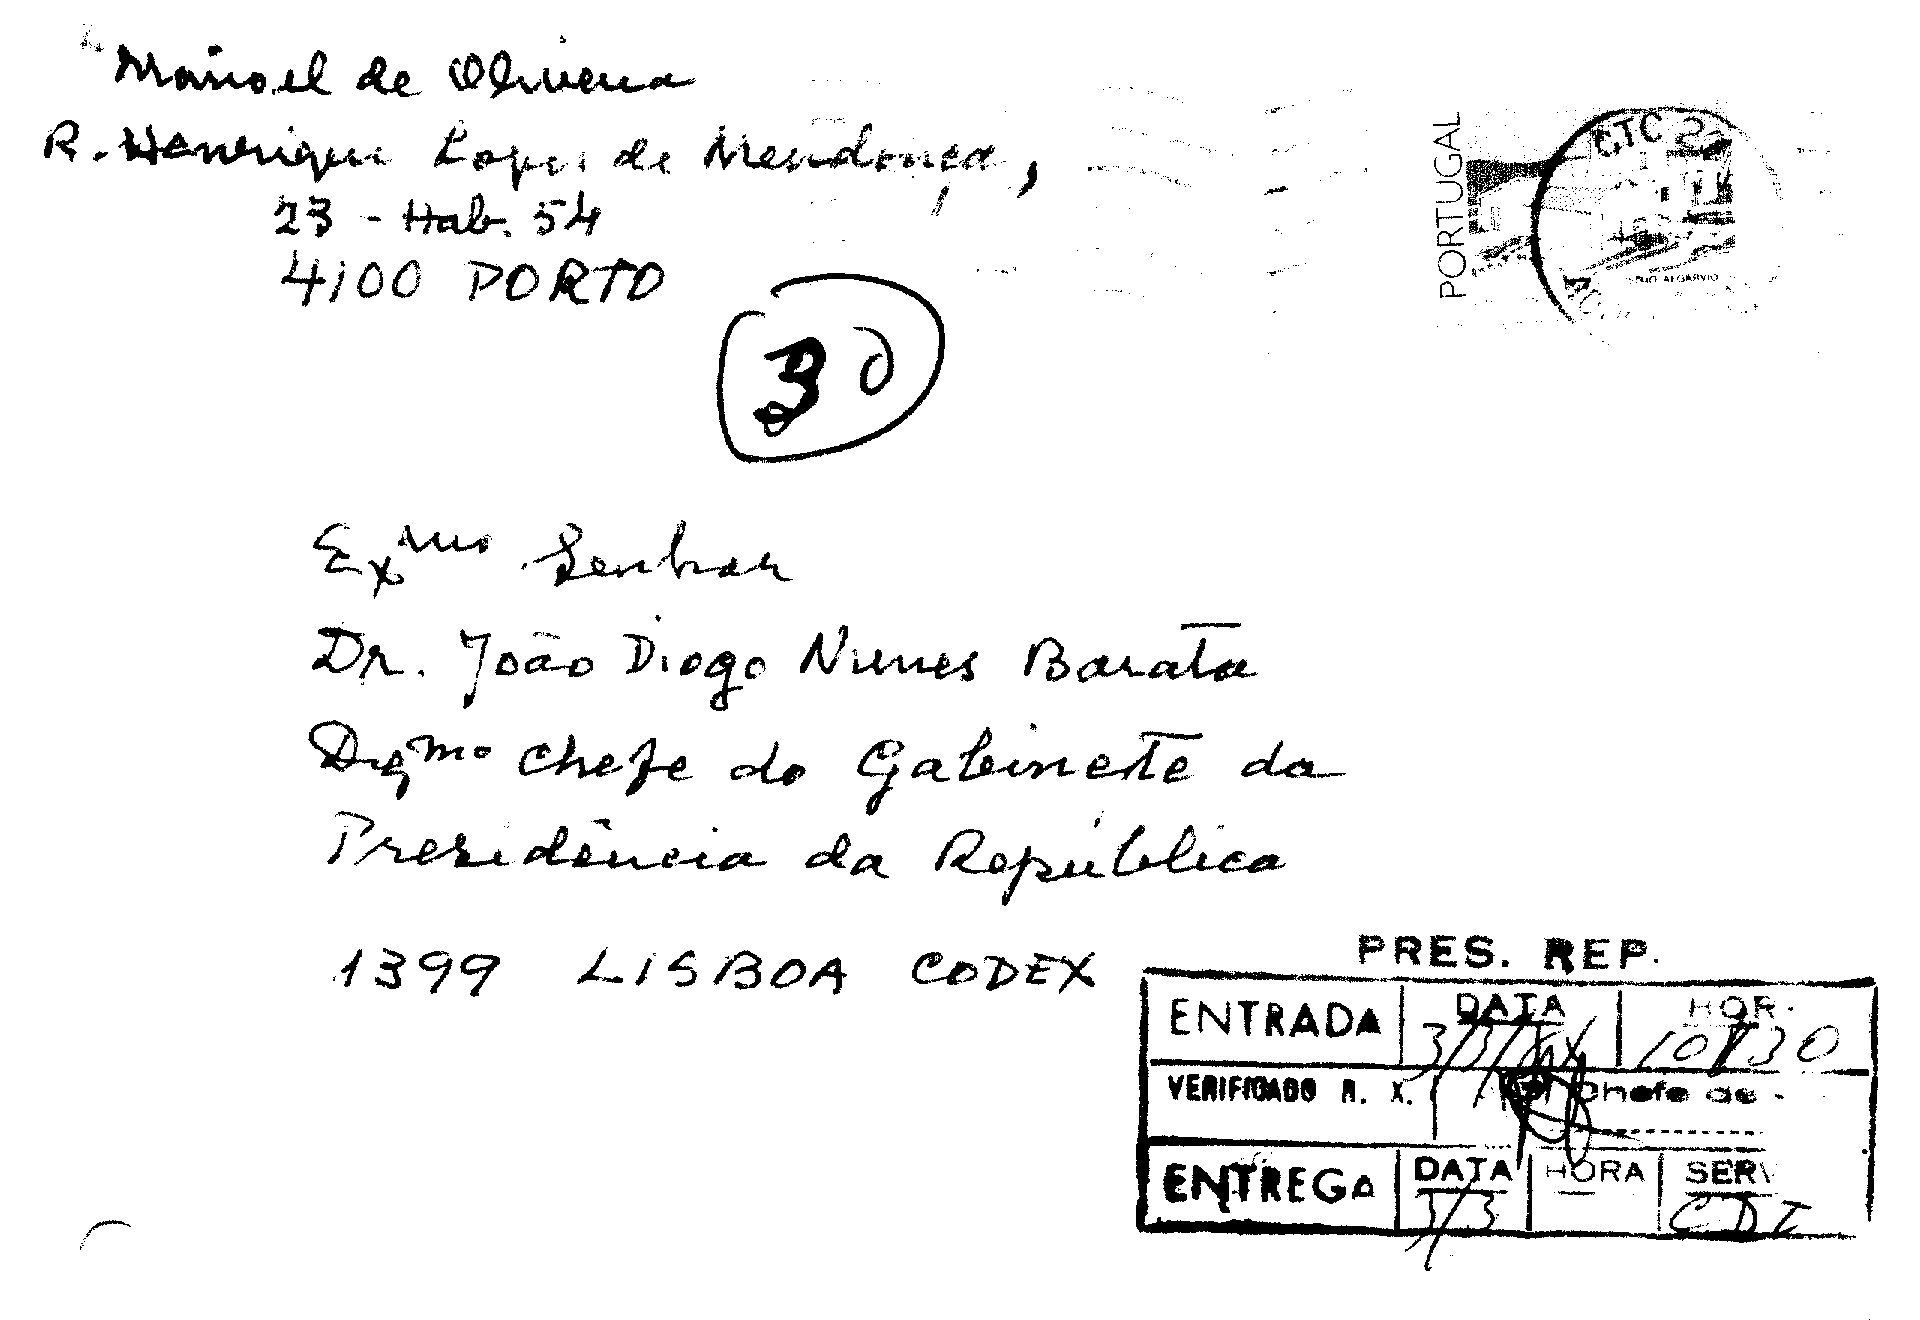 Manoel de Oliveira
R. Henrique Lopes de Mendonça,
23 - Hab. 54
4100 PORTO
PORTUGAL
CTC
ALGARVIO
3º
Exmo Senhor
Dr. João Diogo Nunes Barata
Digmo Chefe do Gabinete da
Presidência da República
1399 LISBOA CODEX
PRES. REP.
ENTRADA DATA HOR.
3/3/ 10 30
VERIFICADO R. X. Chefe de
ENTREGA DATA HORA SERV
3/3